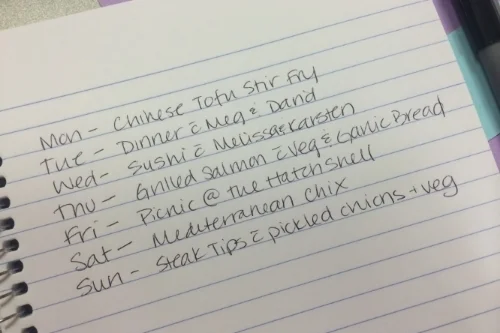 Mon - Chinese Tofu Stir Fry
Tue - Dinner c̄ Meg & David
Wed - Sushi c̄ Melissa & Karsten
Thu - Grilled Salmon c̄ Veg & Garlic Bread
Fri - Picnic @ the Hatch Shell
Sat - Mediterranean Chix
Sun - Steak Tips c̄ pickled onions + veg